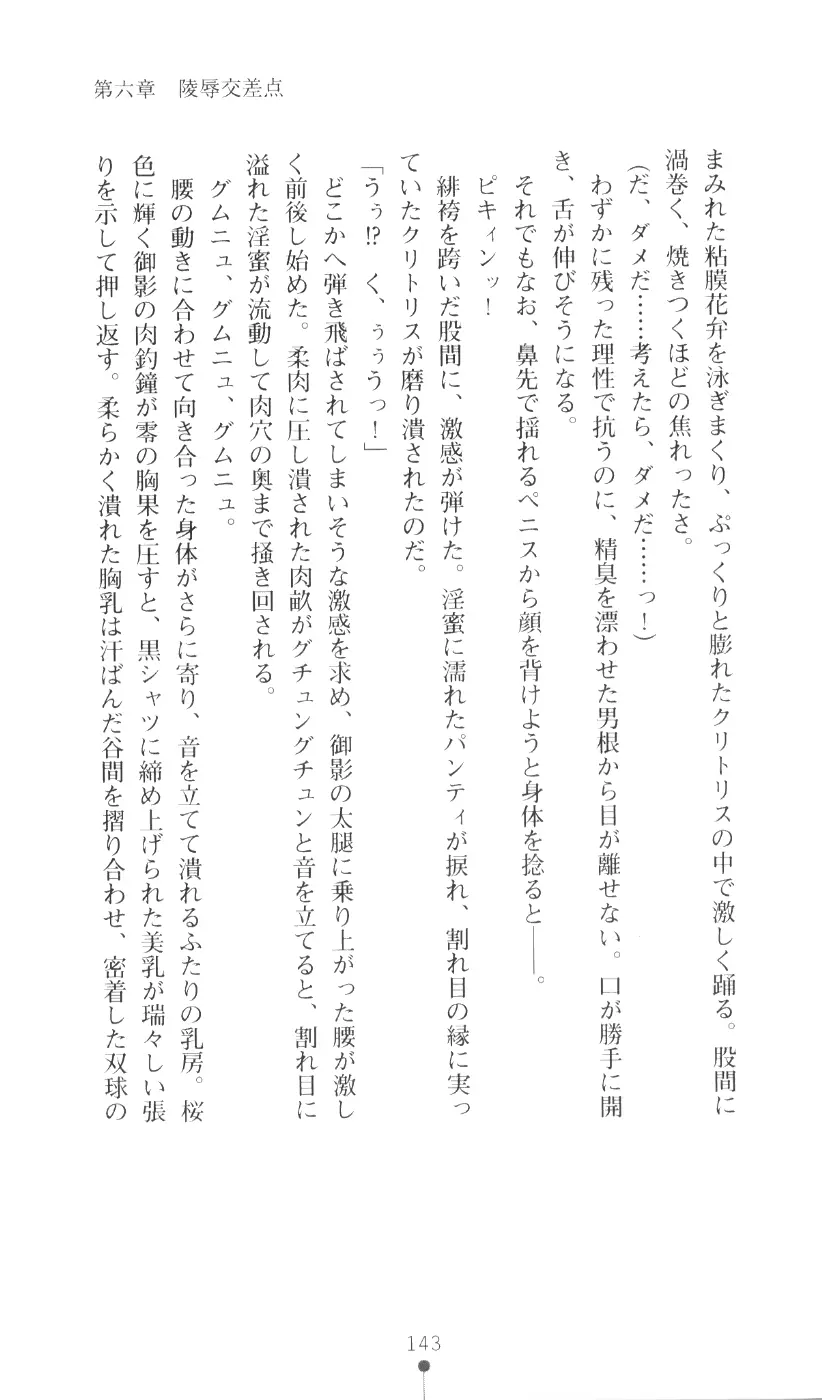 第六章　陵辱交差点
まみれた粘膜花弁を泳ぎまくり、ぷっくりと膨れたクリトリスの中で激しく踊る。股間に
渦巻く、焼きつくほどの焦れったさ。
（だ、ダメだ……考えたら、ダメだ……っ！）
わずかに残った理性で抗うのに、精臭を漂わせた男根から目が離せない。口が勝手に開
き、舌が伸びそうになる。
それでもなお、鼻先で揺れるペニスから顔を背けようと身体を捻ると――。
ピキィンッ！
緋袴を跨いだ股間に、激感が弾けた。淫蜜に濡れたパンティが捩れ、割れ目の縁に実っ
ていたクリトリスが磨り潰されたのだ。
「うぅ!?　く、ぅぅうっ！」
どこかへ弾き飛ばされてしまいそうな激感を求め、御影の太腿に乗り上がった腰が激し
く前後し始めた。柔肉に圧し潰された肉畝がグチュングチュンと音を立てると、割れ目に
溢れた淫蜜が流動して肉穴の奥まで掻き回される。
グムニュ、グムニュ、グムニュ。
腰の動きに合わせて向き合った身体がさらに寄り、音を立てて潰れるふたりの乳房。桜
色に輝く御影の肉釣鐘が零の胸果を圧すと、黒シャツに締め上げられた美乳が瑞々しい張
りを示して押し返す。柔らかく潰れた胸乳は汗ばんだ谷間を摺り合わせ、密着した双球の
143